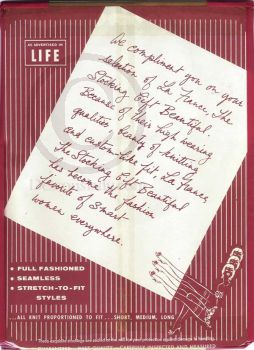 AS ADVERTISED IN
LIFE
We compliment you on your
selection of La France, The
Stocking Gift Beautiful.
Because of their high wearing
qualities, beauty of knitting
and custom like fit La France,
The Stocking Gift Beautiful
has become the fashion
favorite of smart
women everywhere.
• FULL FASHIONED
• SEAMLESS
• STRETCH-TO-FIT
STYLES
...ALL KNIT PROPORTIONED TO FIT...SHORT, MEDIUM, LONG